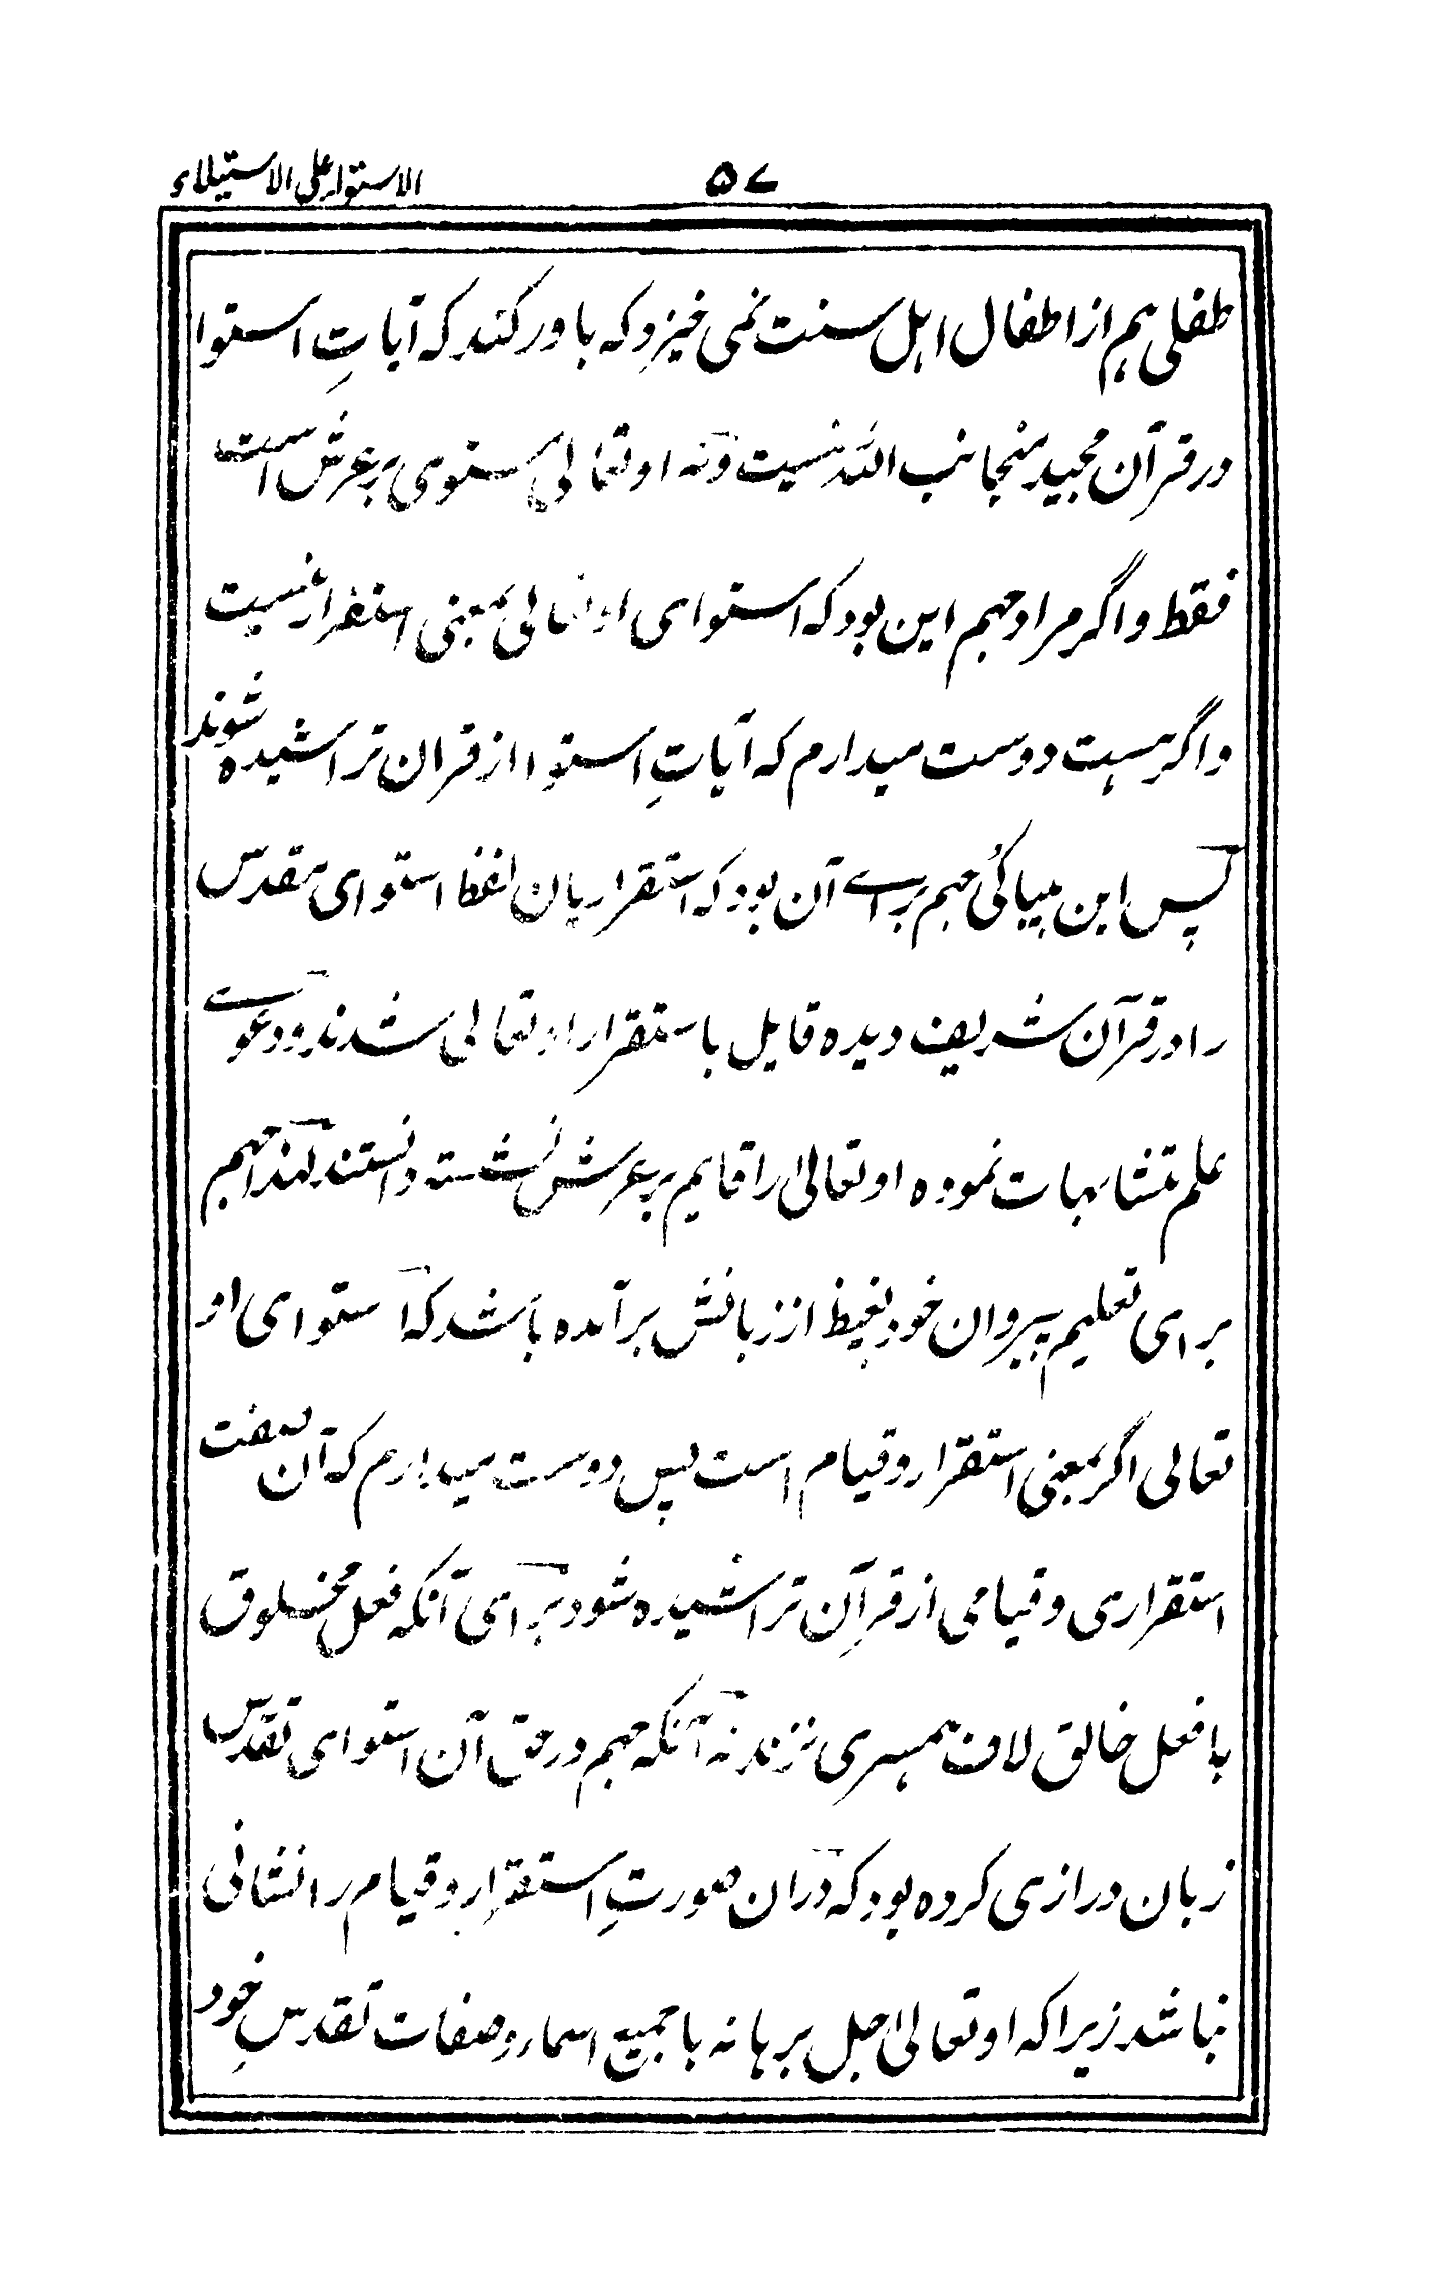 ۵۷ الاستواء علی الاستیلاء
طفلی هم از اطفال اهل سنت نمی خیزد که باور کند که آیاتِ استوا
در قرآن مجید منجانب الله نیست و نه او تعالی مستوی بر عرش است
فقط و اگر مراد جهم این بود که استوای او تعالی بمعنی استقرار نیست
و اگر هست دوست میدارم که آیاتِ استوا از قران تراشیده شوند
پس این بیباکئ جهم براے آن بود که استقراریان لفظ استوای مقدس
را در قرآن شریف دیده قایل باستقرار او تعالی شدند و دعوے
علم متشابهات نموده او تعالیٰ را قایم بر عرش نشسته دانستند لهذا جهم
برای تعلیم پیروان خود بغیظ از زبانش برآمده باشد که استوای او
تعالی اگر بمعنی استقرار و قیام است پس دوست میدارم که آن صفت
استقراری و قیامی از قرآن تراشیده شود برای آنکه فعل مخلوق
با فعل خالق لاف همسری نزند نه آنکه جهم در حق آن استوای تقدس
زبان درازی کرده بود که دران صورتِ استقرار و قیام را نشانی
نباشد زیرا که او تعالیٰ جل برهانه با جمیع اسماء و صفات تقدسِ خود